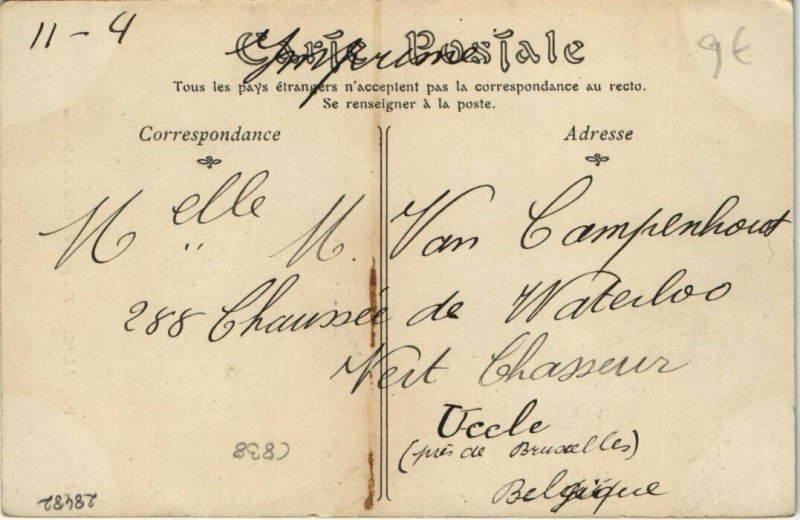 11 - 4
Carte Postale
Imprimé
9€
Tous les pays étrangers n'acceptent pas la correspondance au recto.
Se renseigner à la poste.
Correspondance
Adresse
Melle M. Van Campenhout
288 Chaussée de Waterloo
Vert Chasseur
Uccle
(près de Bruxelles)
Belgique
(838
28482